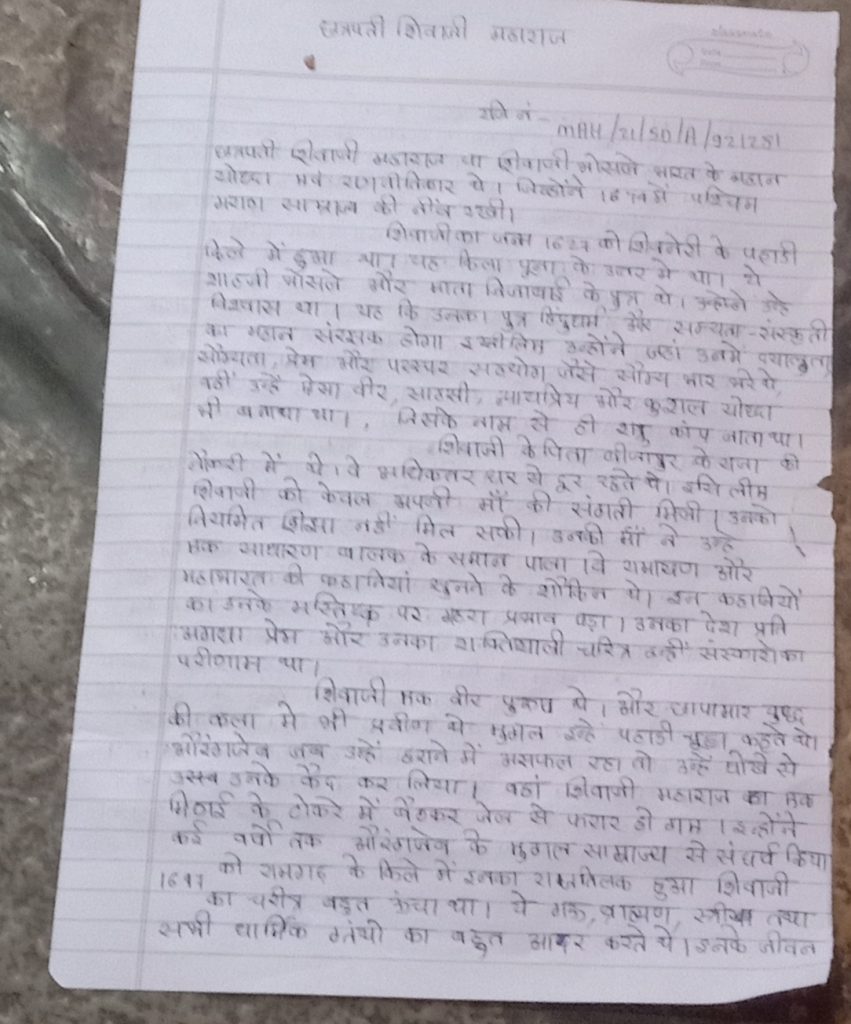 छत्रपती शिवाजी महाराज
classmate
Date
Page
रजि नं - MAH/21/SD/A/921281
छत्रपती शिवाजी महाराज या शिवाजी भोसले भारत के महान
योध्दा एवं रणनीतिकार थे। जिन्होंने में पश्चिम
मराठा साम्राज्य की नींव रखी।
शिवाजी का जन्म 1627 को शिवनेरी के पहाडी
किले में हुआ था। यह किला पूना के उत्तर मे था। ये
शाहजी भोसले और माता जिजाबाई के पुत्र थे। उन्होने उन्हे
विश्वास था। यह कि उनका पुत्र हिंदुधर्म और सभ्यता-संस्कृती
का महान संरक्षक होगा इसलिए उन्होंने जहां उनमें दयालुता,
प्रेम और परस्पर सहयोग जैसे सौम्य भाव भरे थे,
वहीं उन्हें ऐसा वीर, साहसी, न्यायप्रिय और कुशल योध्दा
भी बनाया था। , जिसके नाम से ही शत्रु कांप जाता था।
शिवाजी के पिता बीजापुर के राजा की
नौकरी में थे। वे अधिकतर घर से दूर रहते थे। इसि लीए
शिवाजी को केवल अपनी माँ की संगती मिली। उनको
नियमित शिक्षा नहीं मिल सकी। उनकी माँ ने उन्हे
एक साधारण बालक के समान पाला। वे रामायण और
महाभारत की कहानियां सुनने के शौकिन थे। इन कहानियों
का उनके मस्तिष्क पर गहरा प्रभाव पडा। उनका देश प्रति
प्रेम और उनका शक्तिशाली चरित्र इन्हीं संस्कारो का
परीणाम था।
शिवाजी एक वीर पुरूष थे। और छापामार युध्द
की कला मे भी प्रवीण थे मुगल इन्हे पहाडी चूहा कहते थे।
औरंगजेब जब उन्हें हराने में असफल रहा तो उन्हें धोखे से
उनके कैद कर लिया। वहां शिवाजी महाराज का एक
मिठाई के टोकरे में बैठकर जेल से फरार हो गए। इन्होंने
कई वर्षो तक औरंगजेब के मुगल साम्राज्य से संघर्ष किया
को रामगढ के किले में इनका राजतिलक हुआ शिवाजी
का चरीत्र बहुत ऊंचा था। ये गऊ, ब्राह्मण, तथा
सभी धार्मिक का बहुत आदर करते थे। इनके जीवन